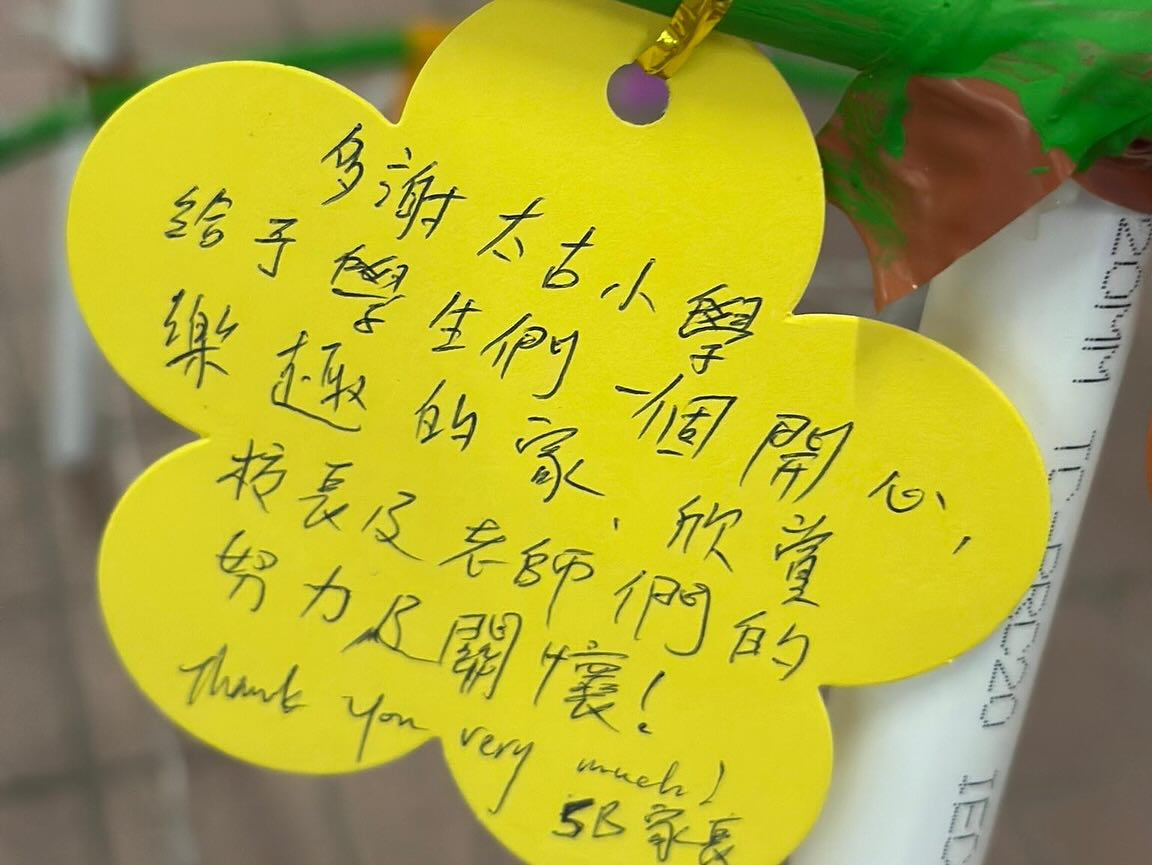 多謝太古小學
給予學生們一個開心,
樂趣的家、欣賞
校長及老師們的
努力及關懷!
Thank you very much!
5B家長
20MM